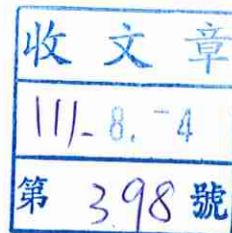 收文章
111.8.-4
第398號